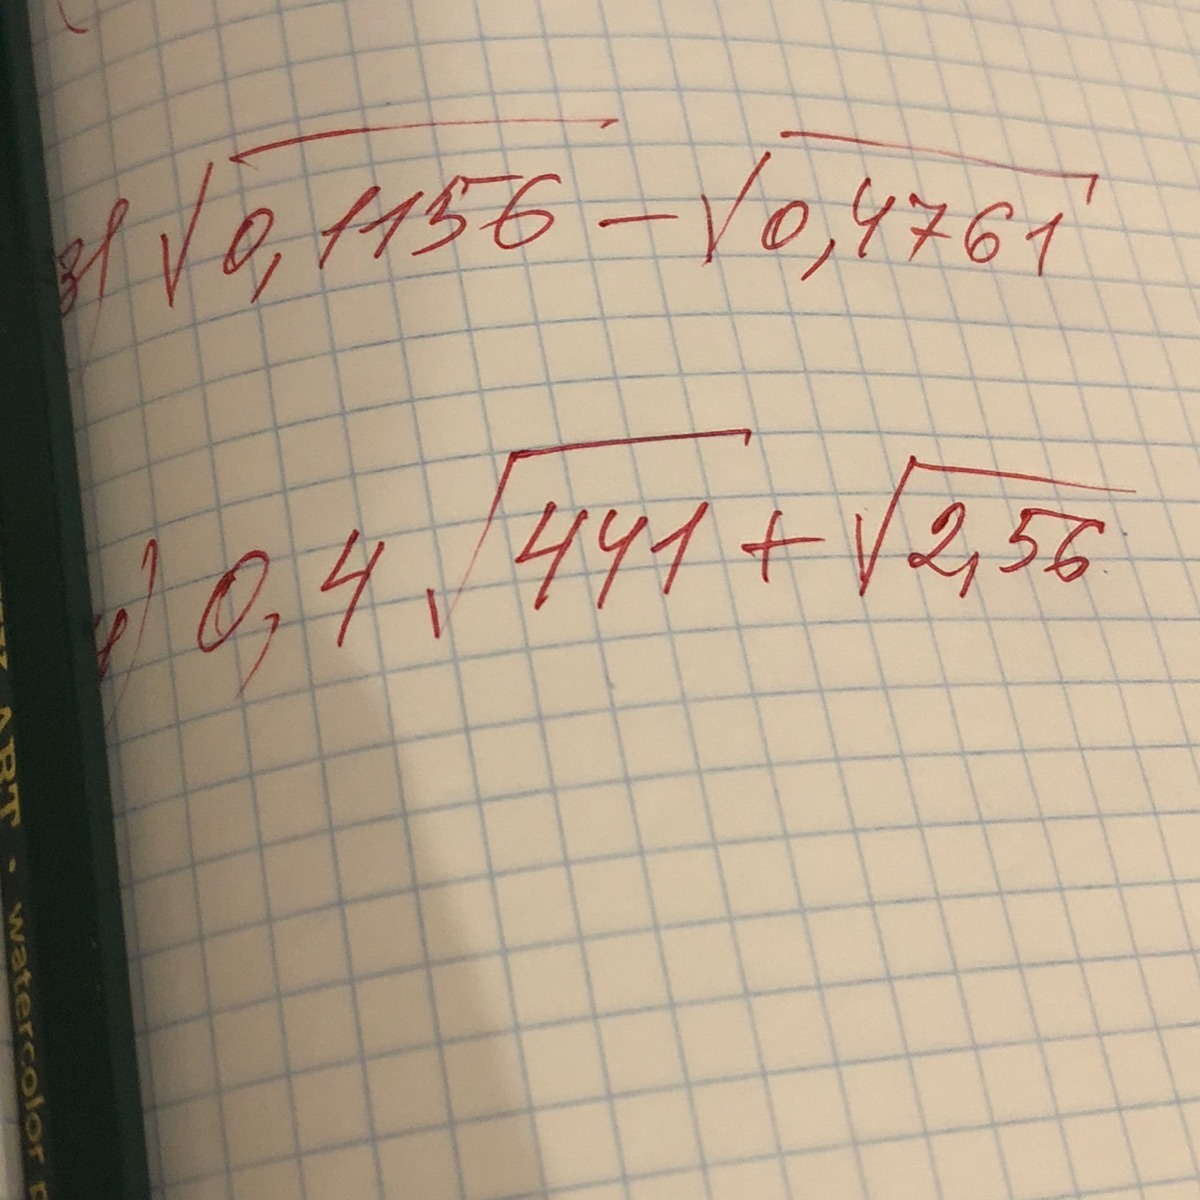 3) √0,1156 - √0,4761
4) 0,4 √441 + √2,56
ART · watercolor